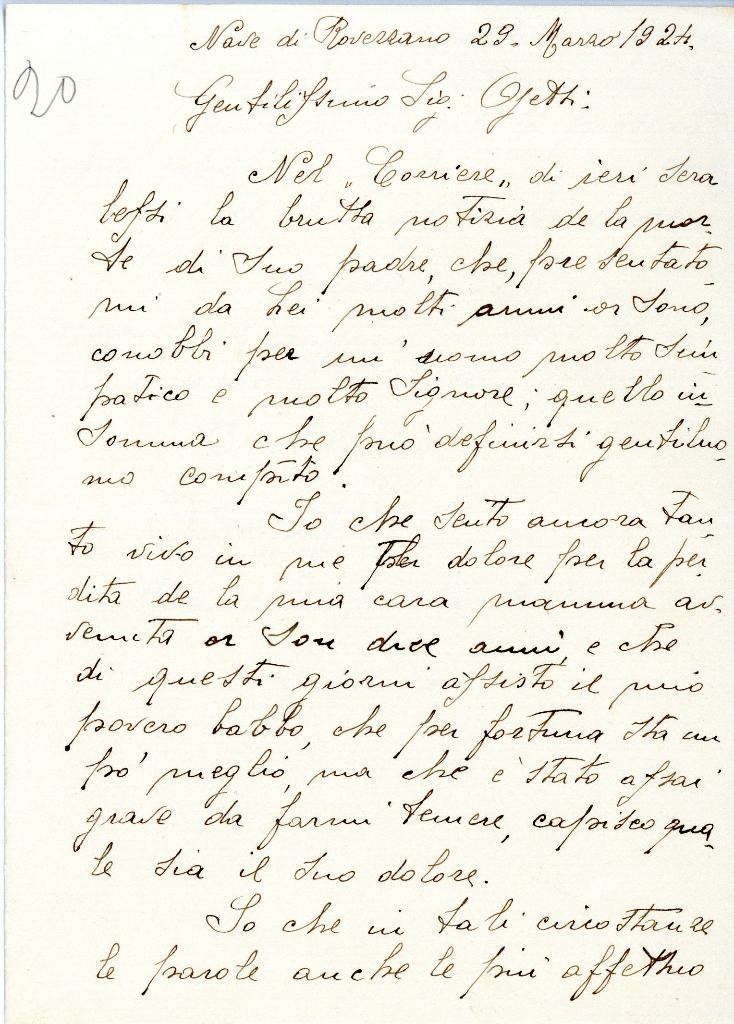 Nave di Rovezzano 29. Marzo 1924.
20
Gentilissimo Sig. Ojetti:
Nel „Corriere„ di ieri sera
lessi la brutta notizia de la mor-
te di Suo padre, che, presentato
mi da Lei molti anni or sono,
conobbi per un' uomo molto sim
patico e molto Signore; quello in-
somma che può definirsi gentiluo-
mo compíto.
Io che sento ancora tan
to vivo in me il dolore per la per
dita de la mia cara mamma av-
venuta or son dieci anni, e che
di questi giorni assisto il mio
povero babbo, che per fortuna sta un
pò meglio, ma che è stato assai
grave da farmi temere, capisco qua-
le sia il suo dolore.
So che in tali circostanze
le parole anche le più affettuo